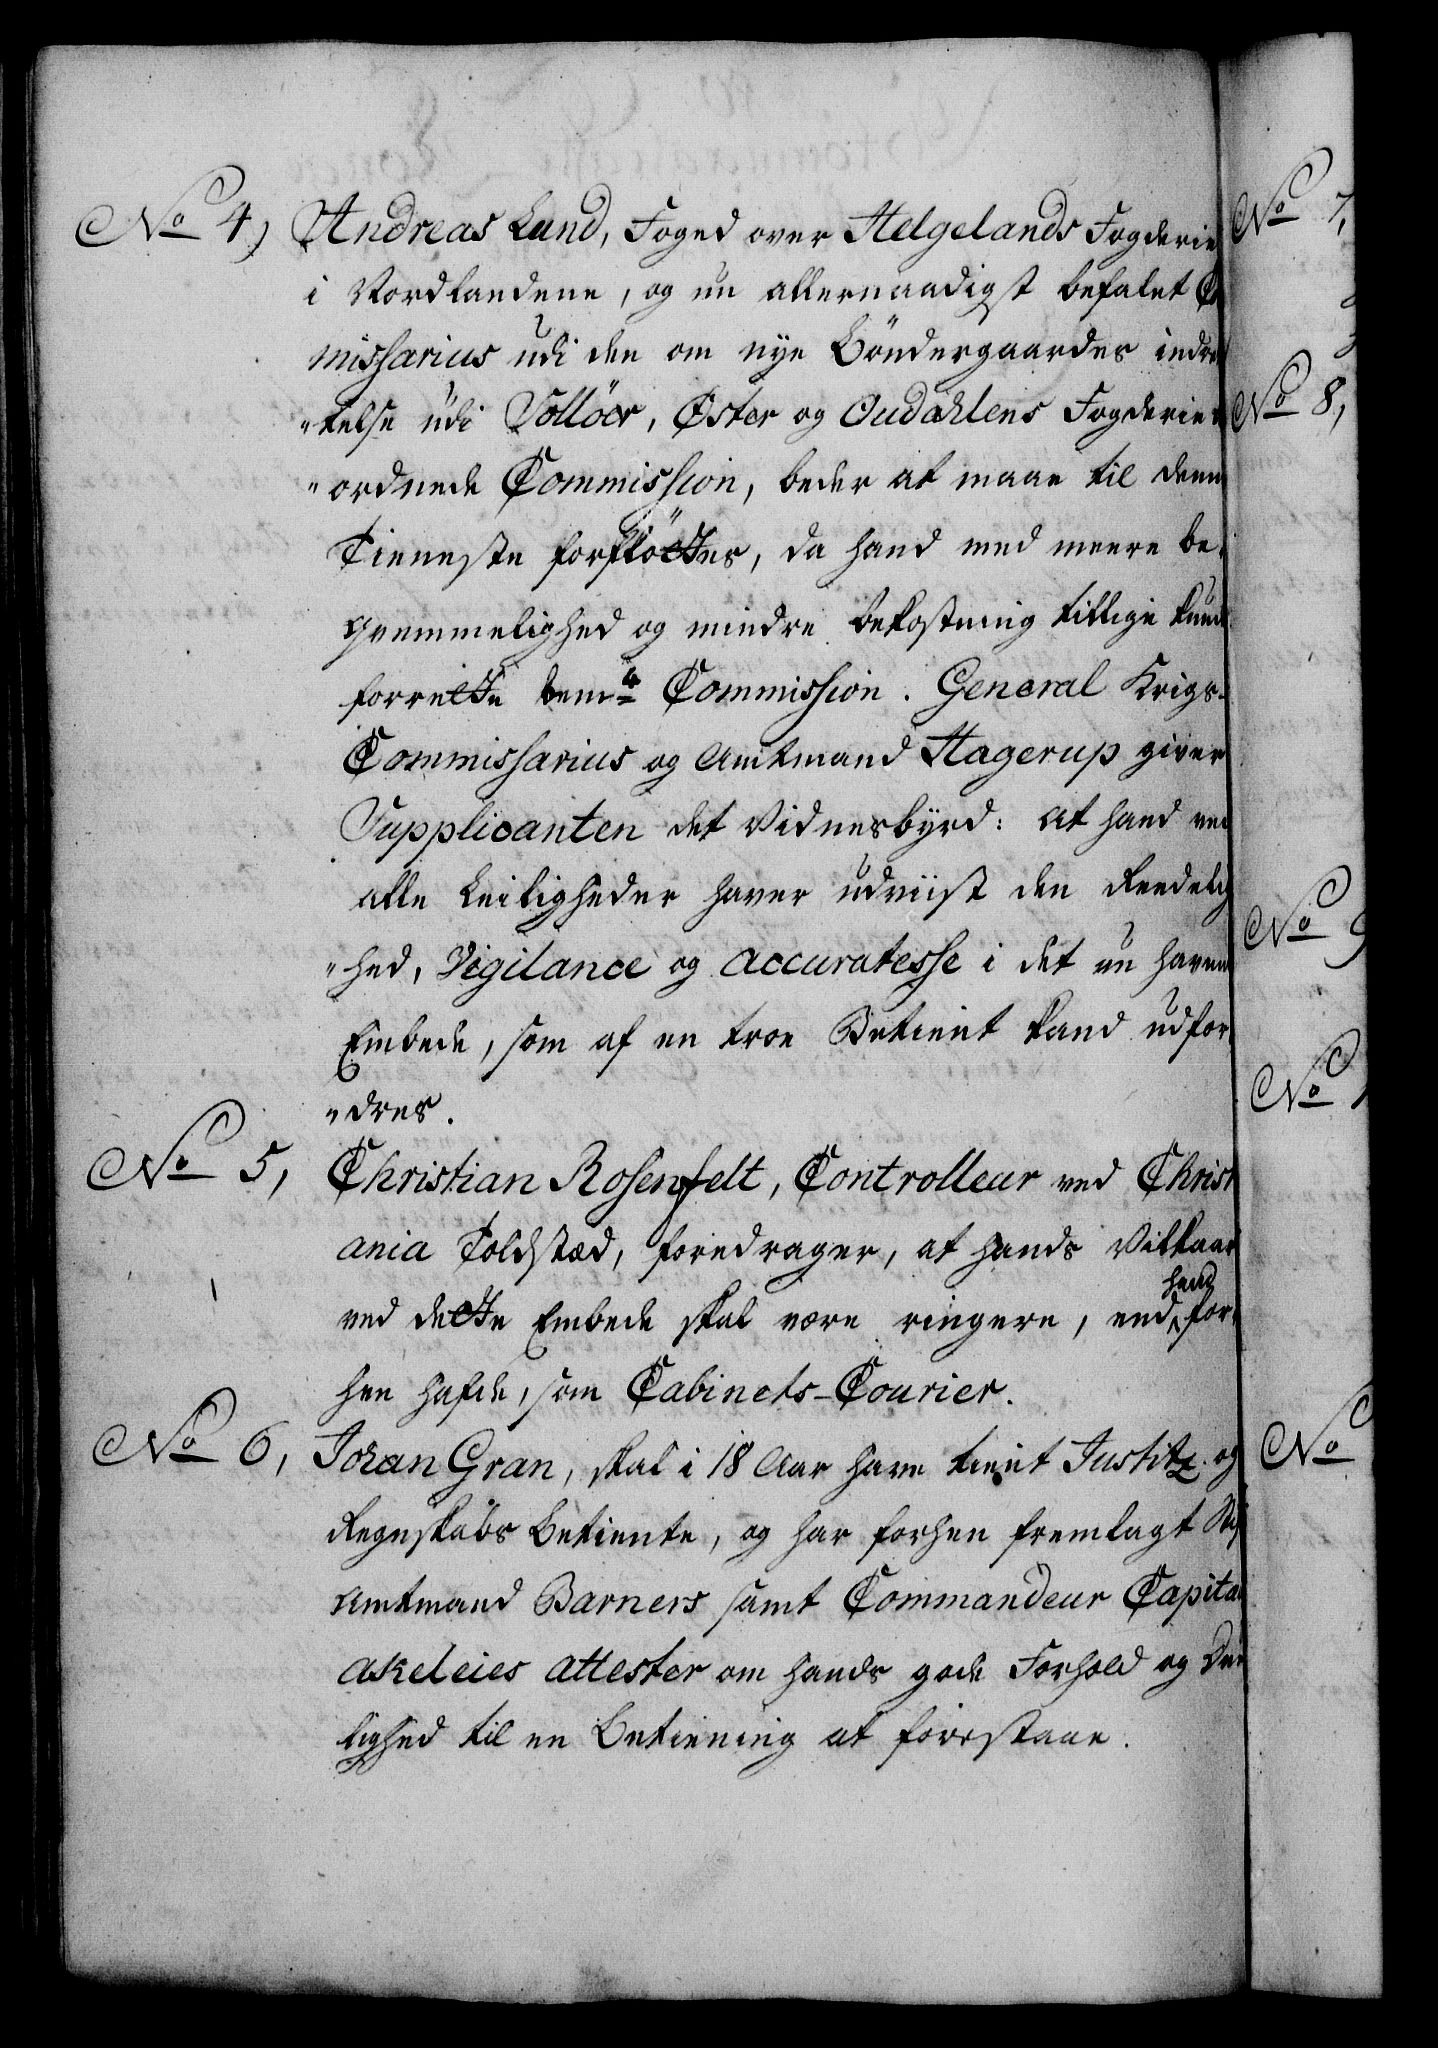 No 4, Andreas Lund, Foged over Helgelands Fogderie
i Nordlandene, og nu allernaadigst befalet Co
missarius udi den om nye Böndergaardes indre
"telse udi Sollöer, Öster og Oudahlens Fogderie
"ordnede Commission, beder at maae til denne
Tieneste forfløttes, da hand med meere be-
qvemmelighed og mindre bekostning tillige kunde
forrette bemte Commission. General Krigs-
Commissarius og Amtmand Hagerup giver
Supplicanten det Vidnesbyrd: at hand ved
alle Leiligheder haver udviist den Reedelig
"hed, Vigilance og accuratesse i det nu havende
Embede, som af en troe Betient kand udfor-
"dres.
No 5, Christian Rosenfelt, Controlleur ved Christi
ania Toldstæd, foredrager, at hands Vilkaar
ved dette Embede skal være ringere, end hand for-
hen hafde, som Cabinets-Courier.
No 6, Johan Gran, skal i 18 Aar have tient Justitz og
Regnskabs Betiente, og har forhen fremlagt Stift
Amtmand Barners samt Commandeur Capitain
Akeleies attester om hands gode Forhold og Due
lighed til en Betiening at forestaae.
No 7,
No 8,
No 9
No
No